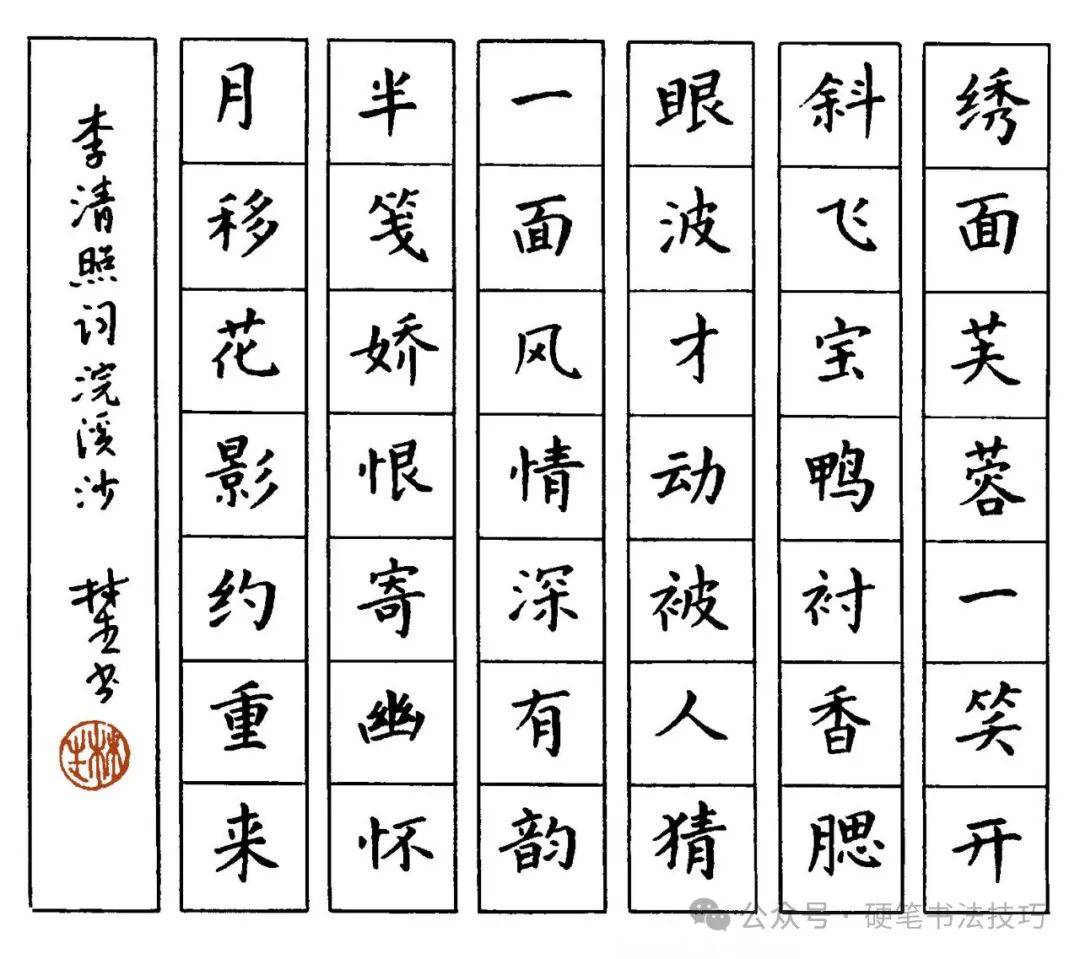 绣面芙蓉一笑开
斜飞宝鸭衬香腮
眼波才动被人猜
一面风情深有韵
半笺娇恨寄幽怀
月移花影约重来
李清照词浣溪沙 楚书
公众号·硬笔书法技巧